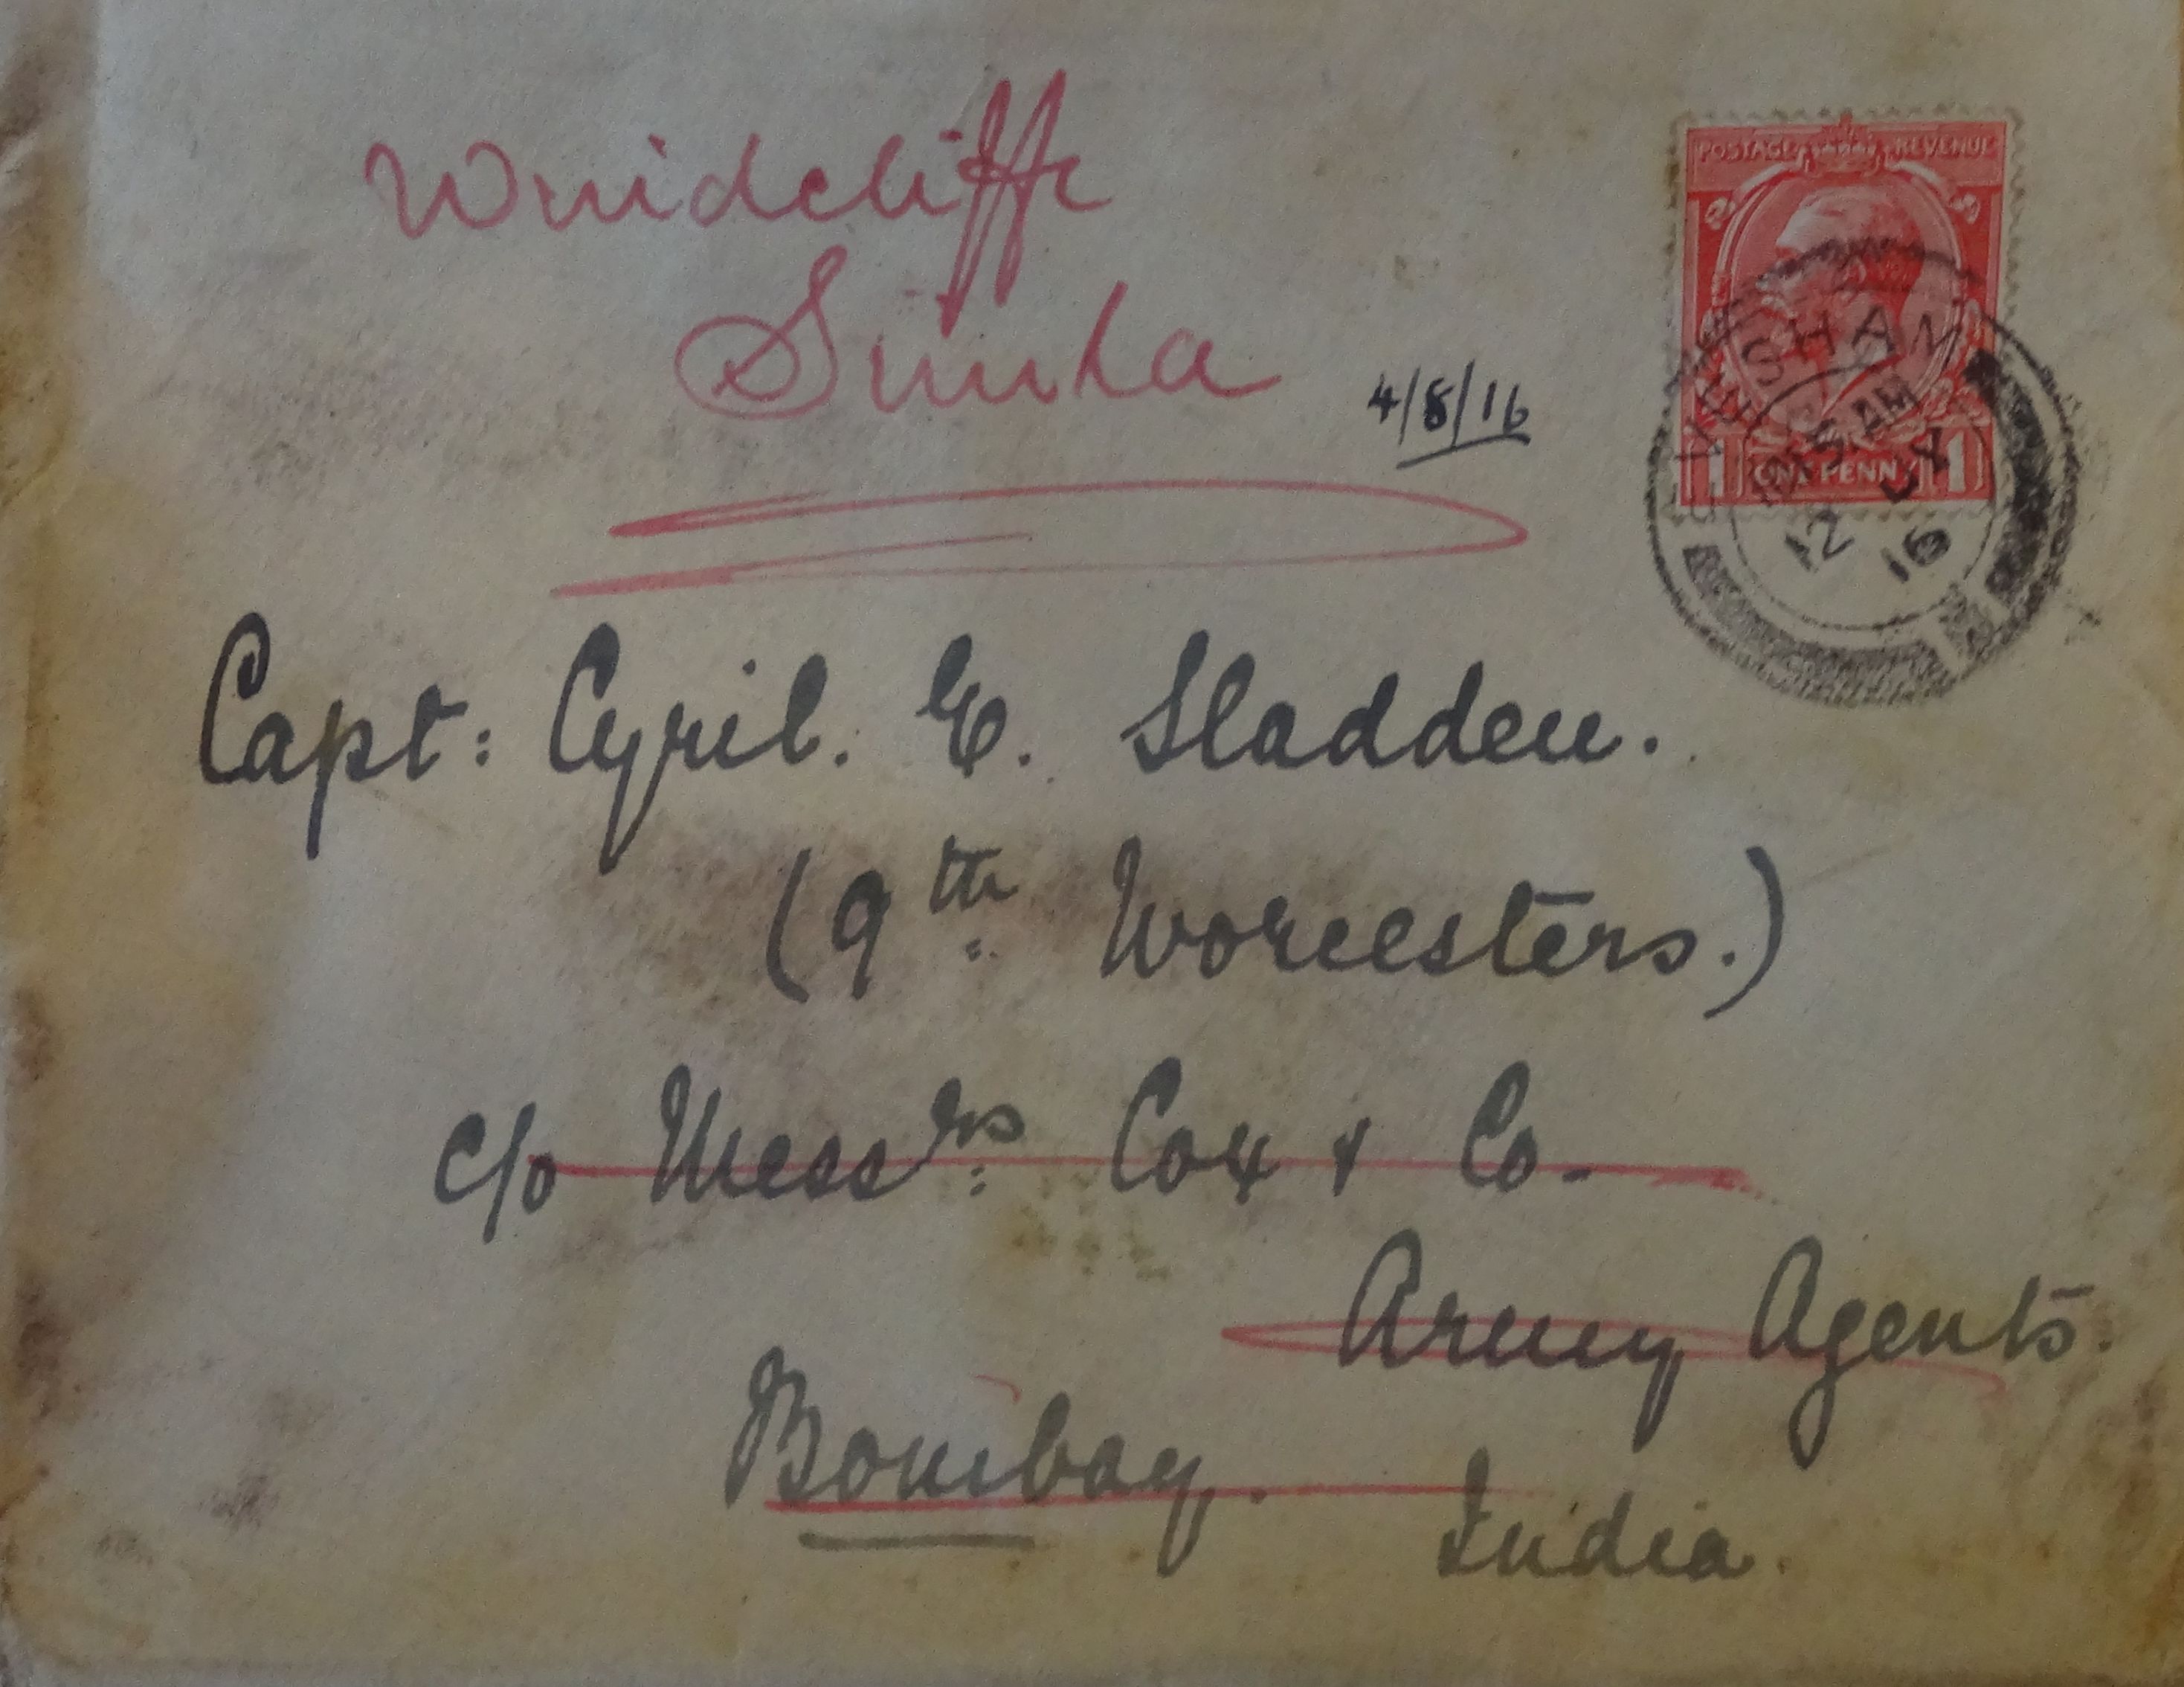 Windcliffe
Simla
4/8/16
POSTAGE REVENUE
1 ONE PENNY 1
EVESHAM
AM
12 JY
16
Capt: Cyril. E. Sladden.
(9th Worcesters.)
c/o Messrs: Cox & Co.
Army Agents.
Bombay.
India.